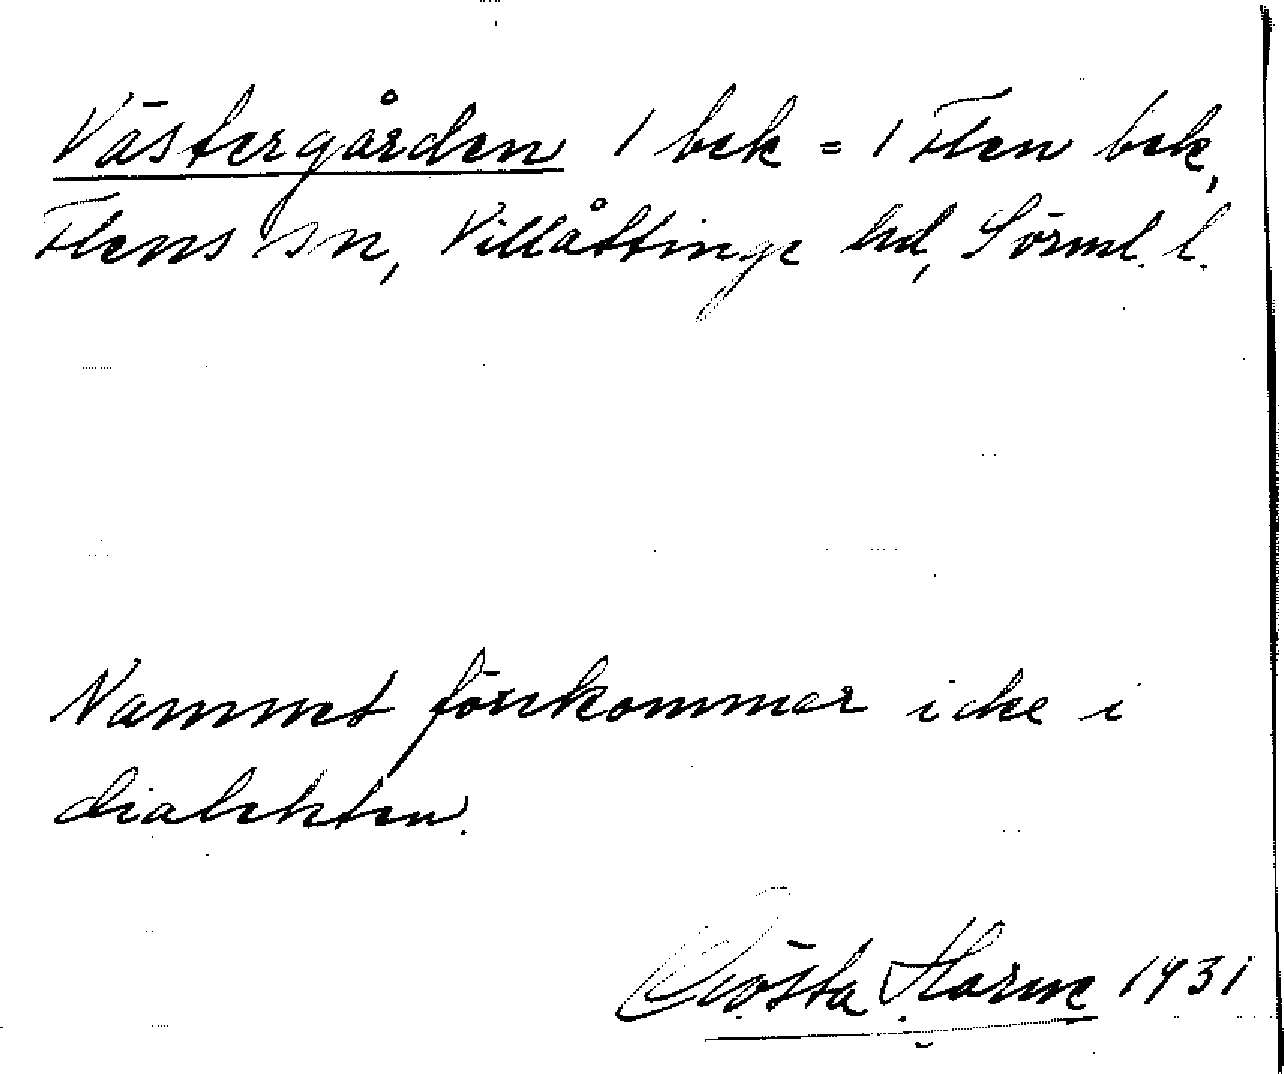 Västergården 1 bek = 1 Flen bek,
Flens sn, Villåttinge hd, Sörml. l.
Namnet förekommer icke i
dialekten.
Gösta Harne 1931